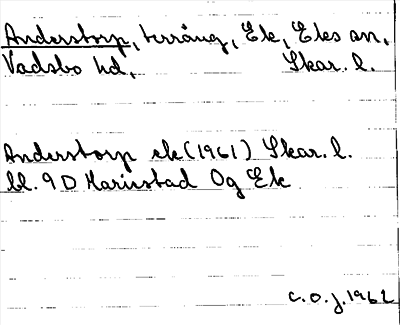 Anderstorp, terräng, Ek, Eks sn,
Vadsbo hd, Skar. l.
Anderstorp ek (1961) Skar. l.
bl. 9 D Mariestad Og Ek
C.O.J. 1962